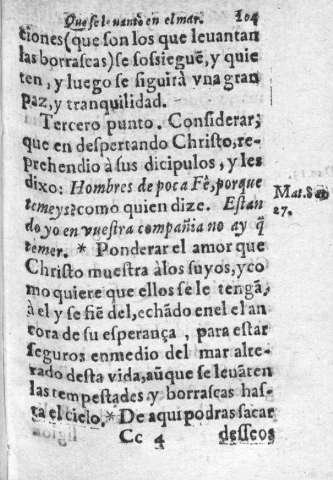 Que se leuanto en el mar. 204
tiones (que son los que leuantan
las borrascas) se sossieguē, y quie
ten, y luego se siguirà vna gran
paz, y tranquilidad.
Tercero punto. Considerar;
que en despertando Christo, re-
prehendio à sus dicipulos, y les
dixo: Hombres de poca Fè, porque
temeys? como quien dize. Estan
do yo en vuestra compañia no ay q̃
temer. * Ponderar el amor que
Christo muestra àlos suyos, y co
mo quiere que ellos se le tengã,
à el y se fiē del, echãdo enel el an
cora de su esperança, para estar
seguros enmedio del mar alte-
rado desta vida, aũque se leuãten
las tempestades y borrascas has-
ta el cielo. * De aqui podras sacar
Cc 4 desseos
Mat. 8
27.